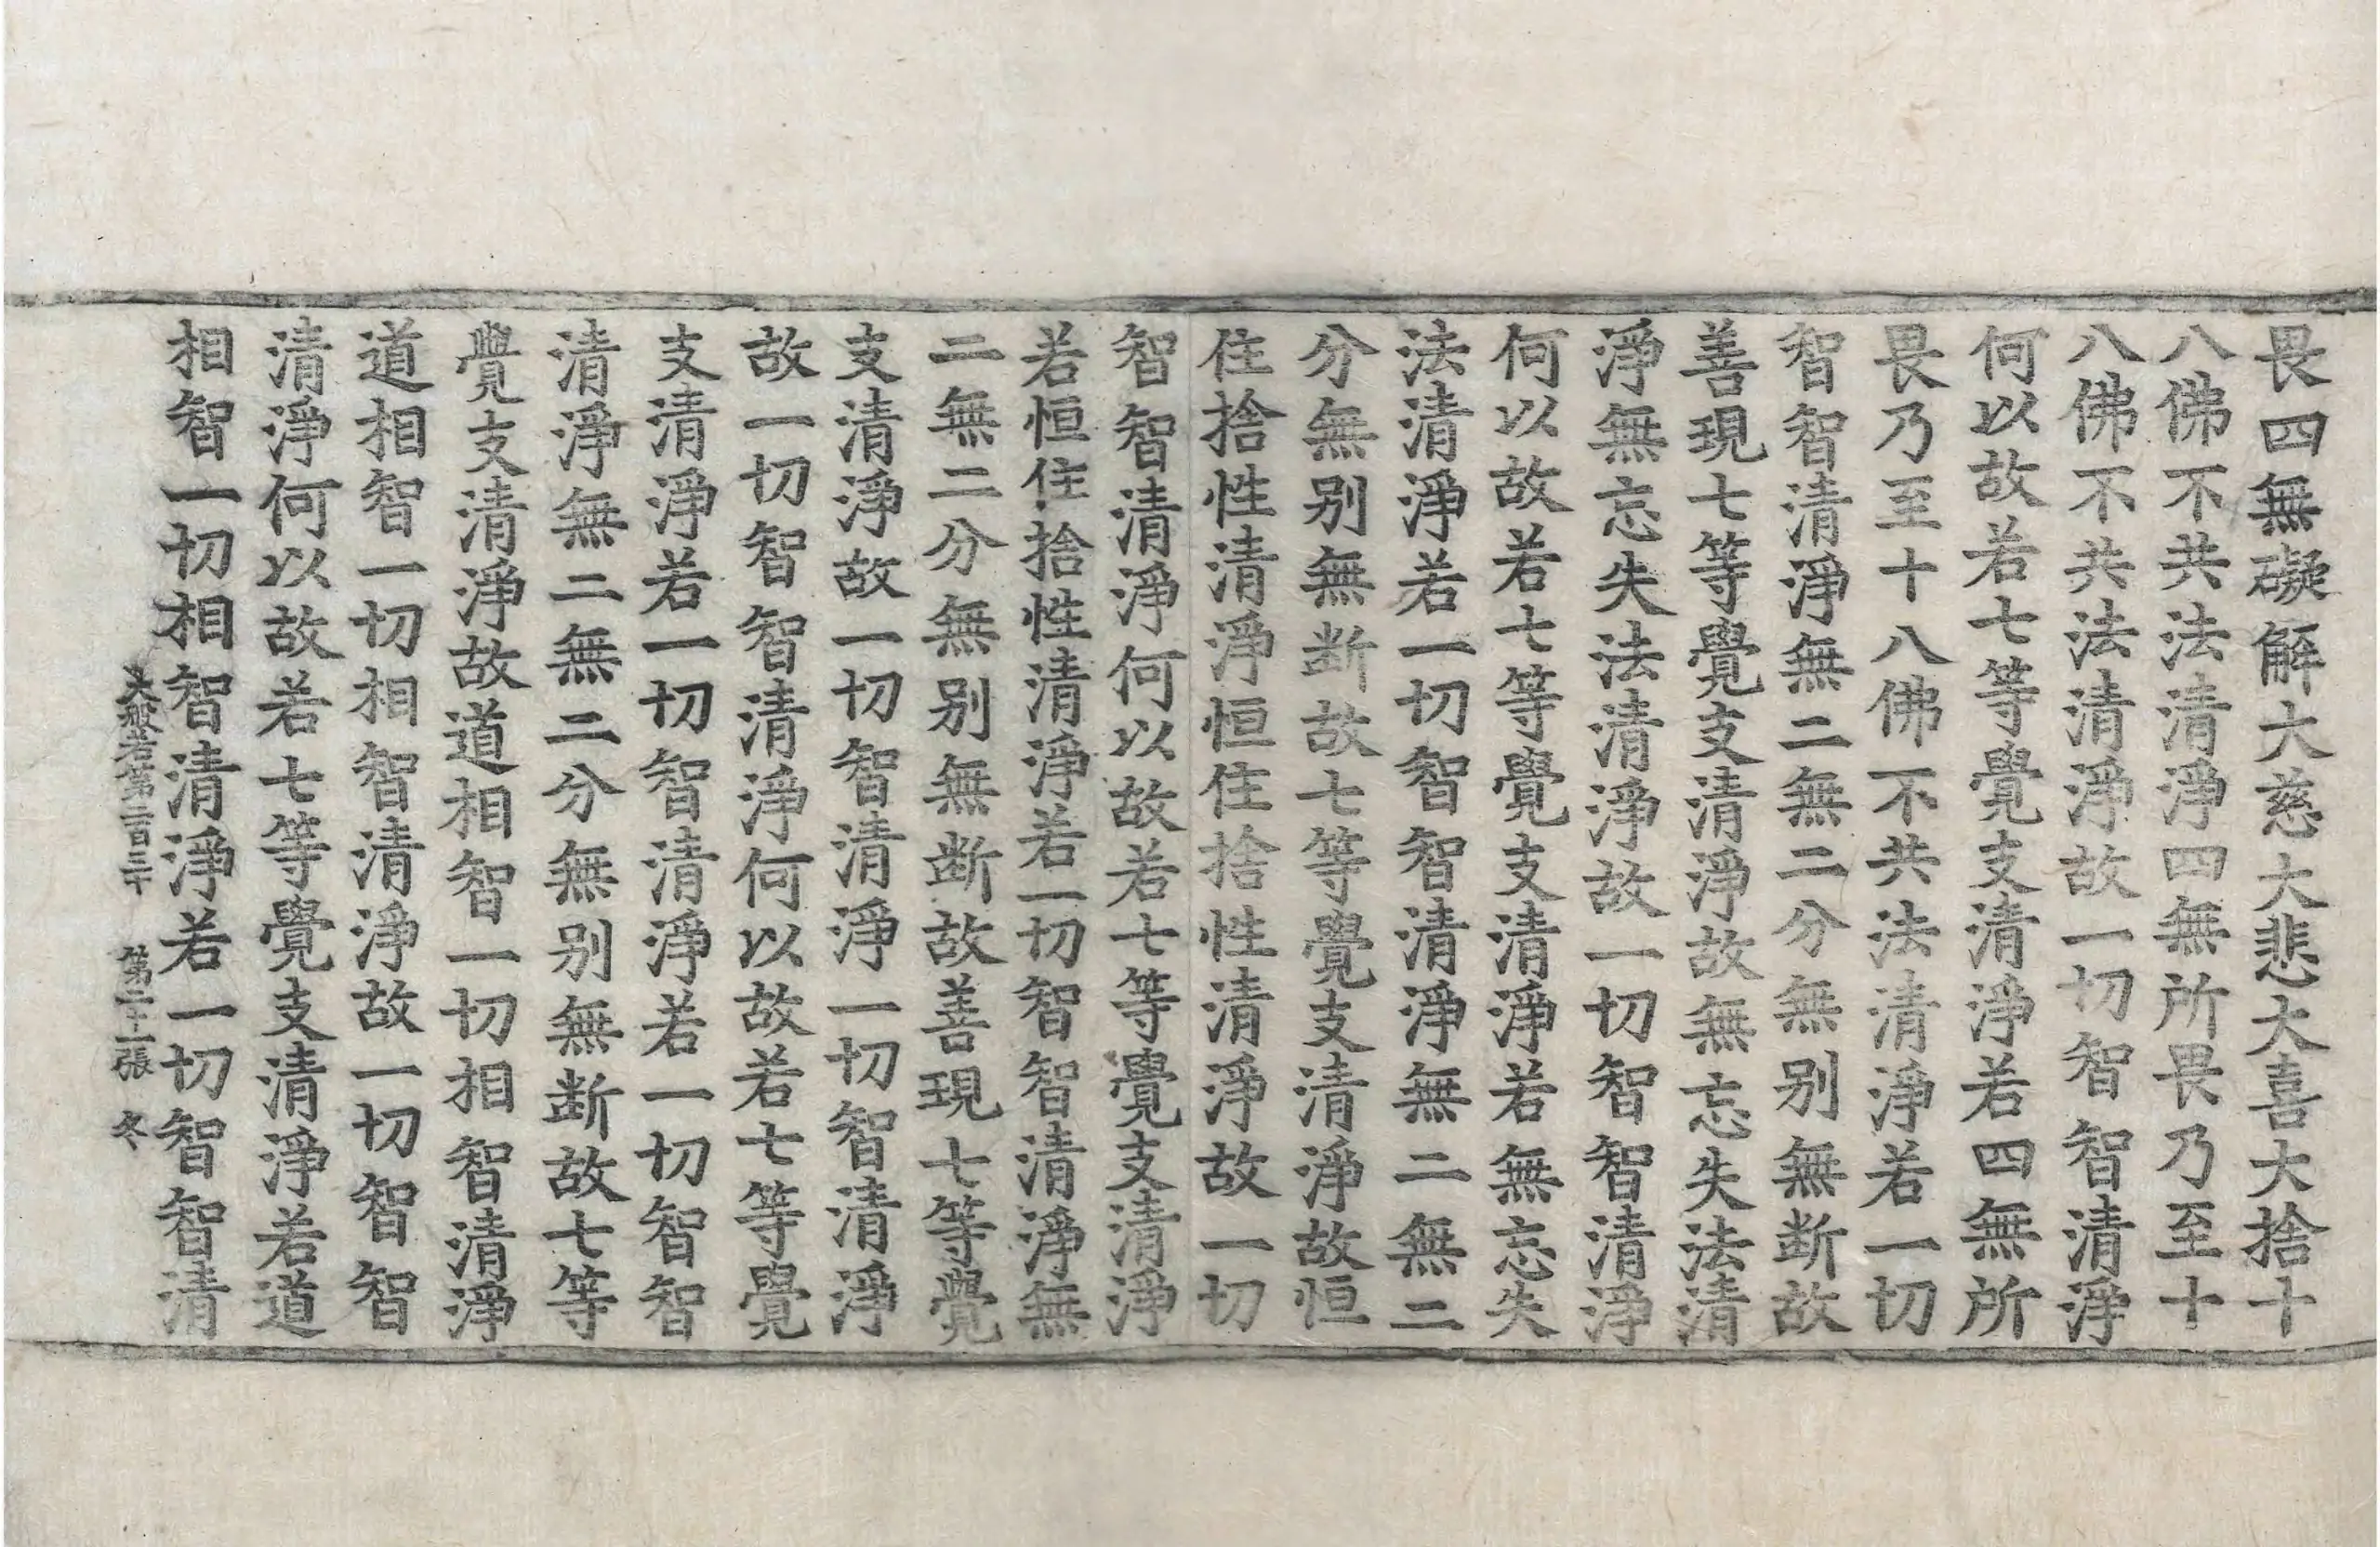 畏四無礙解大慈大悲大喜大捨十
八佛不共法清淨四無所畏乃至十
八佛不共法清淨故一切智智清淨
何以故若七等覺支清淨若四無所
畏乃至十八佛不共法清淨若一切
智智清淨無二無二分無别無断故
善現七等覺支清淨故無忘失法清
淨無忘失法清淨故一切智智清淨
何以故若七等覺支清淨若無忘失
法清淨若一切智智清淨無二無二
分無别無断故七等覺支清淨故恒
住捨性清淨恒住捨性清淨故一切
智智清淨何以故若七等覺支清淨
若恒住捨性清淨若一切智智清淨無
二無二分無别無断故善現七等覺
支清淨故一切智清淨一切智清淨
故一切智智清淨何以故若七等覺
支清淨若一切智清淨若一切智智
清淨無二無二分無别無断故七等
覺支清淨故道相智一切相智清淨
道相智一切相智清淨故一切智智
清淨何以故若七等覺支清淨若道
相智一切相智清淨若一切智智清
大般若第二百三十 第二十一張 冬